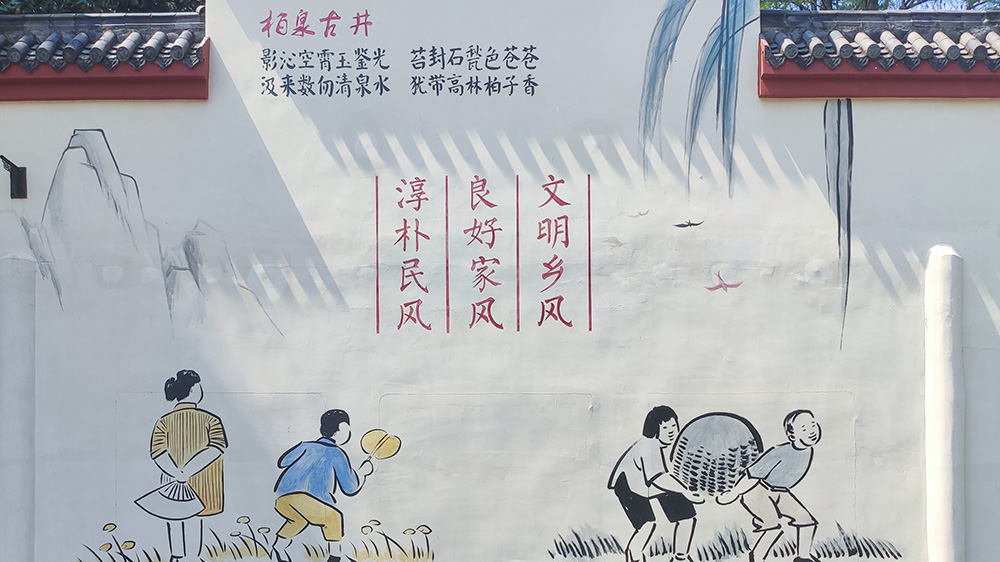 柏泉古井
影沁空霄玉鉴光 苔封石甃色苍苍
汲来数仞清泉水 犹带高林柏子香
文明乡风
良好家风
淳朴民风